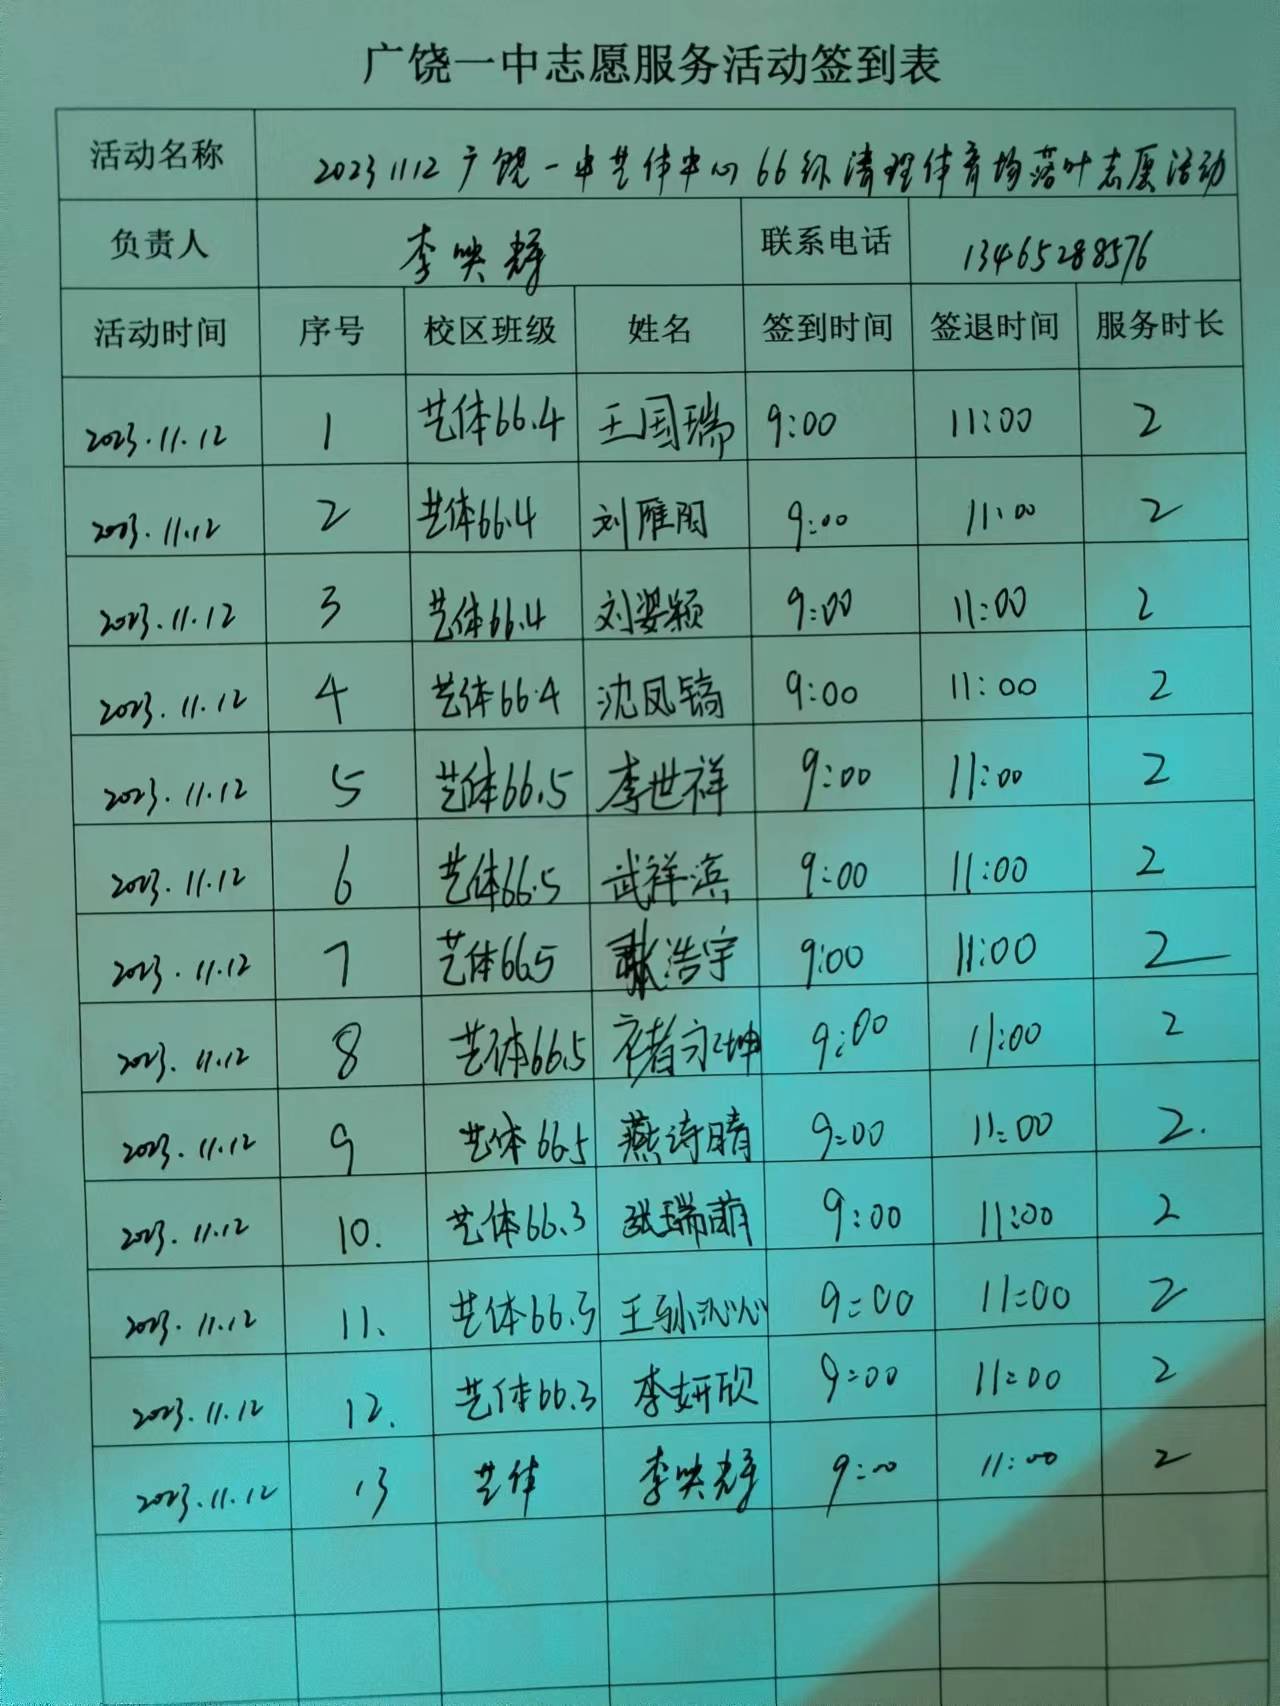 广饶一中志愿服务活动签到表
活动名称 20231112广饶一中艺体中心66级清理体育场落叶志愿活动
负责人 李映辉 联系电话 13465288576
活动时间 序号 校区班级 姓名 签到时间 签退时间 服务时长
2023.11.12 1 艺体66.4 王国瑞 9:00 11:00 2
2023.11.12 2 艺体66.4 刘雁 9:00 11:00 2
2023.11.12 3 艺体66.4 刘姿颖 9:00 11:00 2
2023.11.12 4 艺体66.4 沈凤镐 9:00 11:00 2
2023.11.12 5 艺体66.5 李世祥 9:00 11:00 2
2023.11.12 6 艺体66.5 武祥滨 9:00 11:00 2
2023.11.12 7 艺体66.5 张浩宇 9:00 11:00 2
2023.11.12 8 艺体66.5 褚永坤 9:00 11:00 2
2023.11.12 9 艺体66.5 燕诗晴 9:00 11:00 2.
2023.11.12 10. 艺体66.3 张瑞萌 9:00 11:00 2
2023.11.12 11. 艺体66.3 王孙沁沁 9:00 11:00 2
2023.11.12 12. 艺体66.3 李妍欣 9:00 11:00 2
2023.11.12 13 艺体 李映辉 9:00 11:00 2